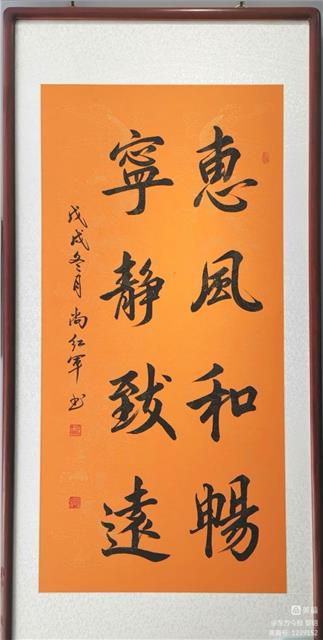 惠風和暢
寧靜致遠
戊戌冬月尚红军书
美篇
@东方今报 黎明
美篇号: 1229152